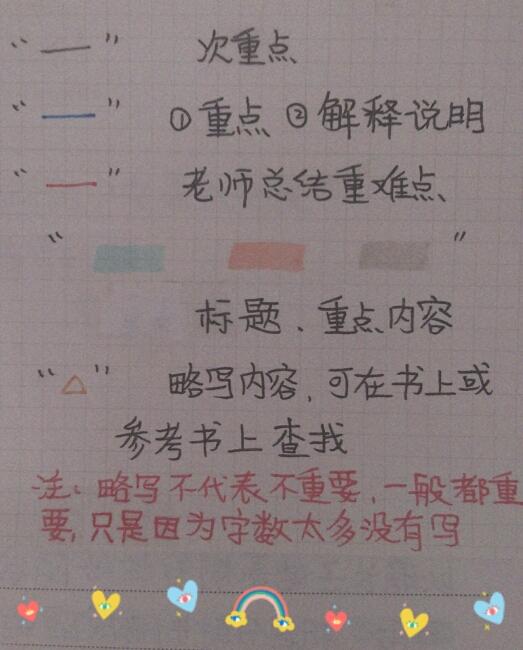 “—” 次重点
“—” ①重点 ②解释说明
“—” 老师总结重难点、
“ ”
标题、重点内容
“△” 略写内容，可在书上或
参考书上查找
注：略写不代表不重要，一般都重
要，只是因为字数太多没有写